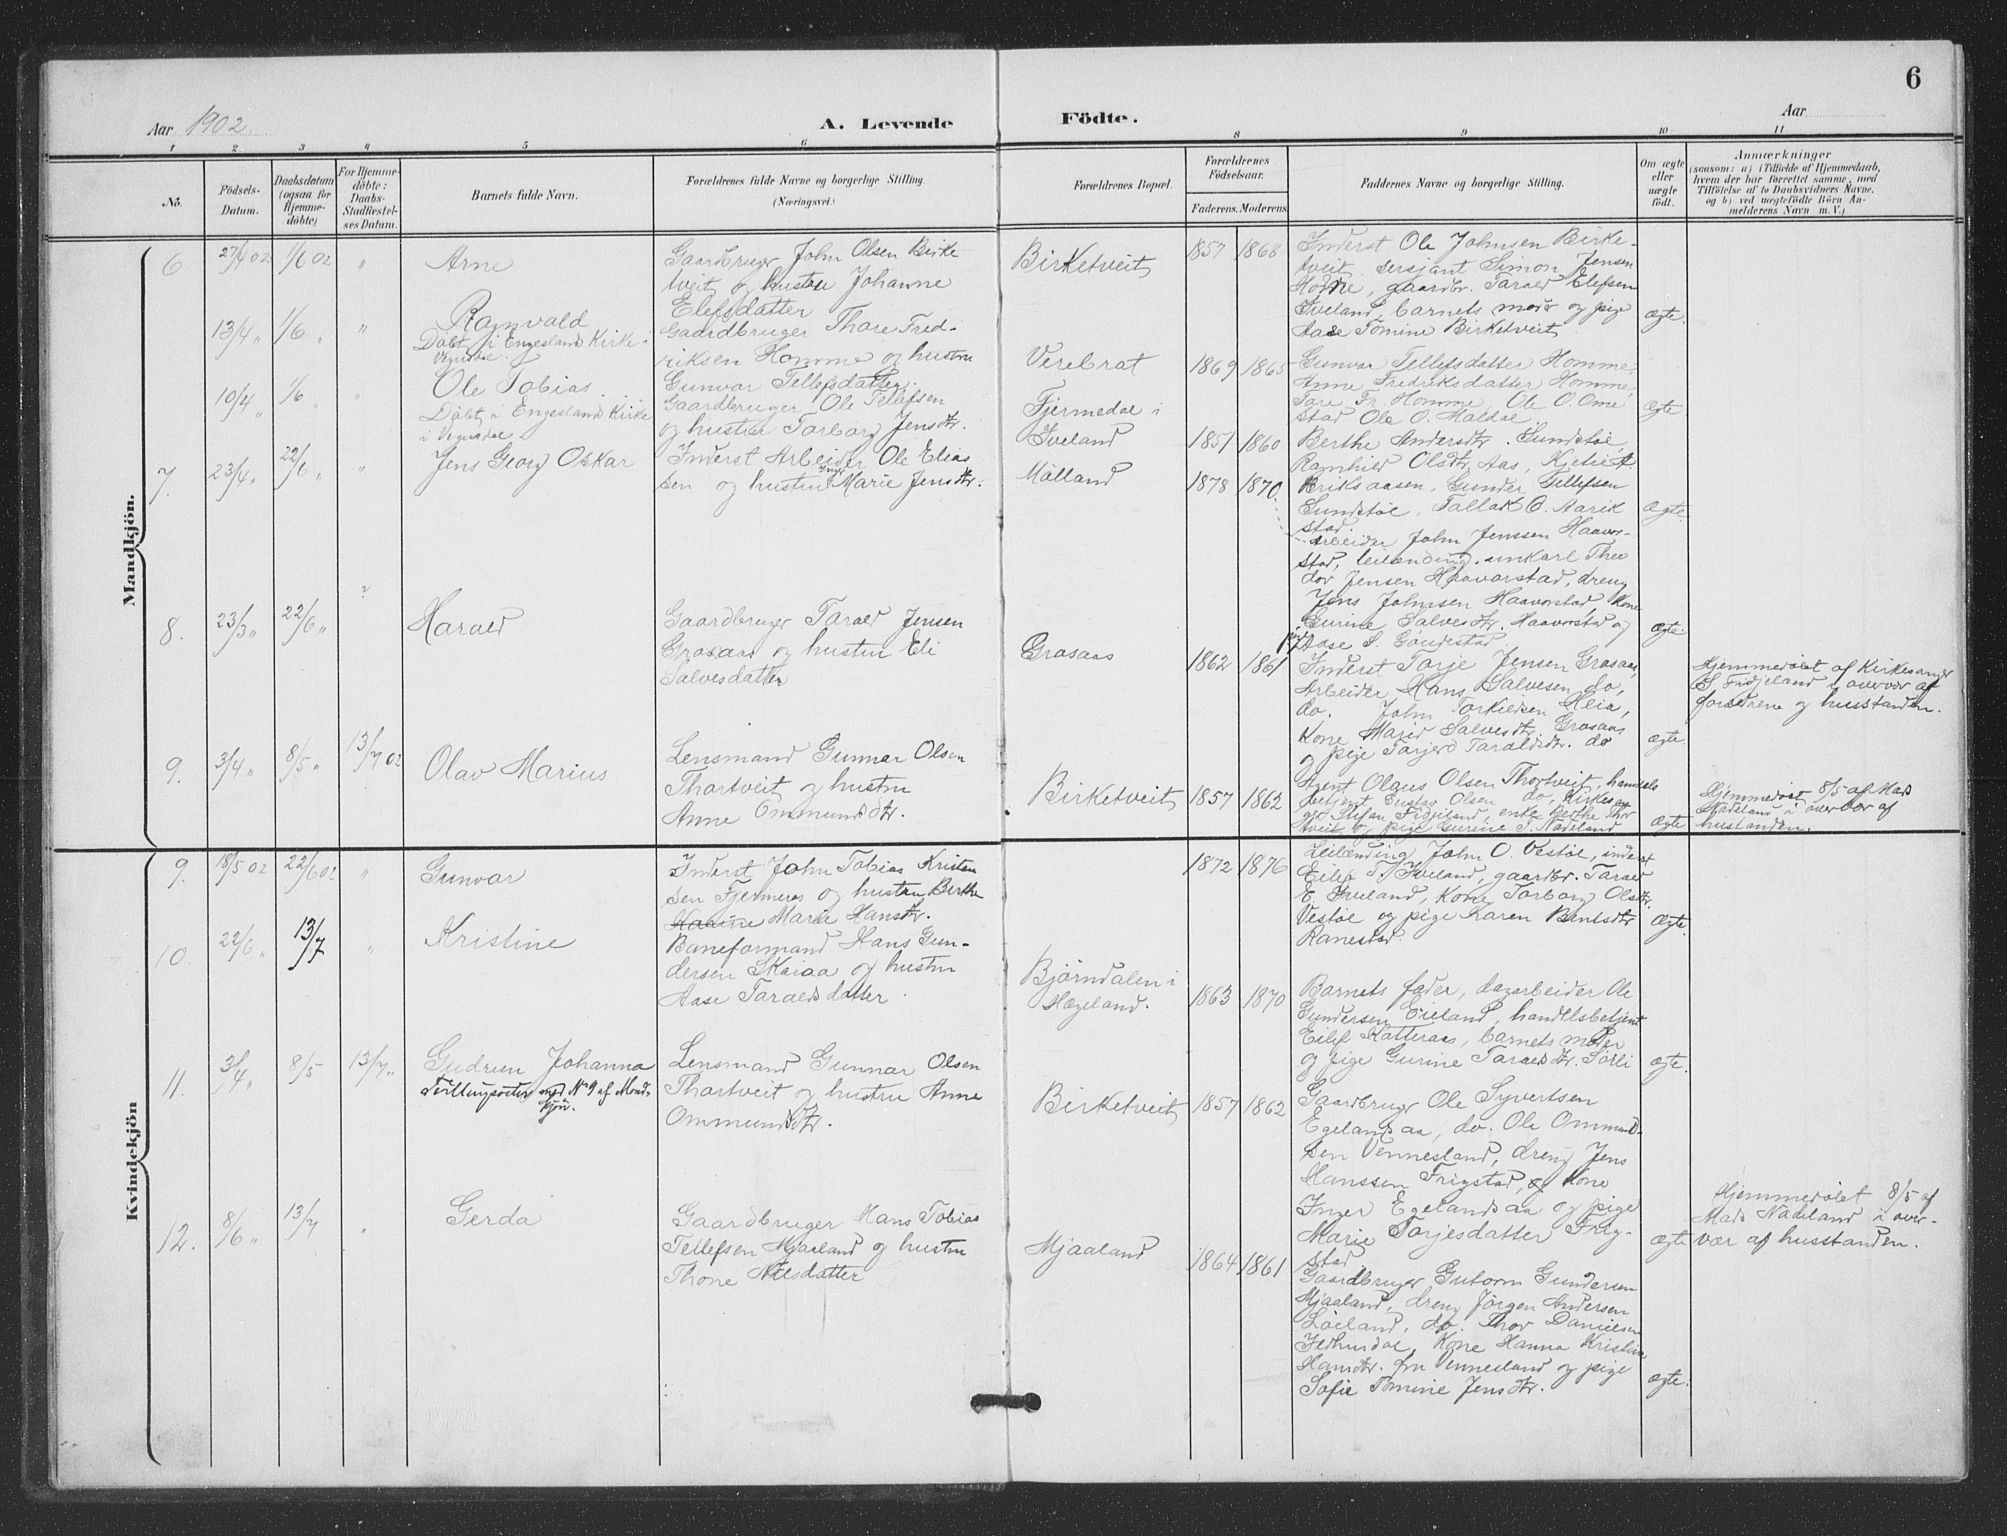 6
Aar 1902.
A. Levende Födte.
Aar
1 2 3 4 5 6 8 9 10 11
No.
Födsels-
Datum.
Daabsdatum
(ogsaa for
Hjemme-
döbte)
For Hjemme-
döbte:
Daabs-
Stadfæstel-
ses Datum.
Barnets fulde Navn.
Forældrenes fulde Navne og borgerlige Stilling
(Næringsvei.)
Forældrenes Bopæl.
Forældrenes
Födselsaar.
Faderens. Moderens
Faddernes Navne og borgerlige Stilling.
Om ægte
eller
uægte
födt.
Anmærkninger
(saasom: a) i Tilfælde af Hjemmedaab,
hvem der har forrettet samme, med
Tilföielse af to Daabsvidners Navne.
og b) ved uægtefödte Börn An-
melderens Navn m. V.)
Mandkjön.
6 27/4 02 1/6 02 " Arne
Gaardbruger John Olsen Birke
tveit og hustru Johanne
Elefsdatter
Birketveit 1857 1868
Inderst Ole Johnsen Birke-
tveit, sersjant Simon Jensen
gaardbr. Tarald Elefsen
Iveland, barnets moder og pige
Aase Tomine Birketveit
ægte.
13/4 " 1/6 " " Ranvald
Döbt i Engesland Kirke i
Vegusdal.
Gaardbruger Thore Fred-
riksen Homme og hustru
Gunvor Tellefsdatter.
Verebrat 1869 1865
Gunvor Tellefsdatter Homme,
Anne Fredriksdatter Homme,
Tore Fr. Homme, Ole O. Ome
stad Ole O. Maldal
ægte
10/4 " 1/6 " " Ole Tobias.
Döbt i Engesland Kirke
i Vegusdal.
Gaardbruger Ole Tellefsen
og hustru Torborg Jensdtr.
Fjermedal i
Iveland 1851 1860
Berthe Andersdtr. Sundstøl,
Ranhild Olsdtr. Aas, Kjetil A.
Eriksaasen, Gunder Tellefsen
Sundstøl, Tallak O. Aarik
stad.
ægte.
7. 23/4 " 22/6 " " Jens Georg Oskar
Inderst Arbeider Ole Elias
sen og hustru Inger Marie Jensdtr.
Mölland 1878 1870
Arbeider John Jenssen Haavor-
stad, leilending, unkarl Theo
dor Jensen Haavorstad, dreng
Jens Johnsen Haavorstad, Kone
Gurine Salvesdtr. Haavorstad og
pige Aase S. Søndestad
ægte.
8. 23/3 " 22/6 " " Harald
Gaardbruger Tarald Jensen
Grosaas og hustru Eli
Salvesdatter
Grosaas 1862 1861
Inderst Torje Jensen Grosaas,
Arbeider Hans Salvesen do,
do. John Torkildsen Heia,
Kone Maria Salvesdtr. Grosaas
og pige Torjerd Taraldsdtr. do
ægte
Hjemmedöbt af Kirkesanger
S. Fidjeland i overvær af
forældrene og husstanden.
9. 3/4 " 8/5 " 13/7 02 Olav Marius
Lensmand Gunnar Olsen
Thortveit og hustru
Anne Ommundsdtr.
Birketveit 1857 1862
Agent Olaus Olsen Thortveit, handels
betjent Gustav Olsen do, Kirkesan
ger Stefan Fidjeland, enke Berthe Thor
tveit og pige Gurine T. Nadeland
ægte
Hjemmedöbt 8/5 af Mads
Nadeland i overvær af
husstanden.
Kvindekjön
9. 18/5 02 22/6 02 " Gunvor
Inderst John Tobias Kristen
sen Fjermeros og hustru Berthe
Marie Hansdtr.
1872 1876
Leilending John O. Vestøl, inderst
Eilef T. Iveland, gaardbr. Tarald
E. Iveland, Kone Torborg Olsdtr.
Vestøl og pige Karen Berntsdtr
Ranestad.
ægte.
10. 22/6 " 13/7 " Kristine
Baneformand Hans Gun-
dersen Skaiaa og hustru
Aase Taraldsdatter.
Bjørndalen i
Hægeland. 1863 1870
Barnets fader, dagarbeider Ole
Gundersen Eieland, handelsbetjent
Eilef Katteraas, barnets moder
og pige Gurine Taraldsdtr. Sørli
ægte.
11. 3/4 " 8/5 13/7 " Gudrun Johanna
Tvillingsøster med No 9 af Mand-
kjön.
Lensmand Gunnar Olsen
Thortveit og hustru Anne
Ommundsdtr.
Birketveit 1857 1862
Gaardbruger Ole Syvertsen
Egelandsaa, do. Ole Ommund-
sen Vennesland, dreng Jens
Hanssen Frigstad, og Kone
Inger Egelandsaa og pige
Marie Torjesdatter Frig-
stad
ægte
Hjemmedöbt 8/5 af
Mads Nadeland i over-
vær af husstanden.
12. 8/6 " 13/7 " Gerda
Gaardbruger Hans Tobias
Tellefsen Mjaaland og hustru
Thone Nilsdatter
Mjaaland 1864 1861
Gaardbruger Gutorm Gundersen
Mjaaland, dreng Jörgen Andersen
Löland, do. Thor Danielsen
Kone Hanna Kristine
Hansdtr. fra Vennesland og pige
Sofie Tomine Jensdtr.
ægte.